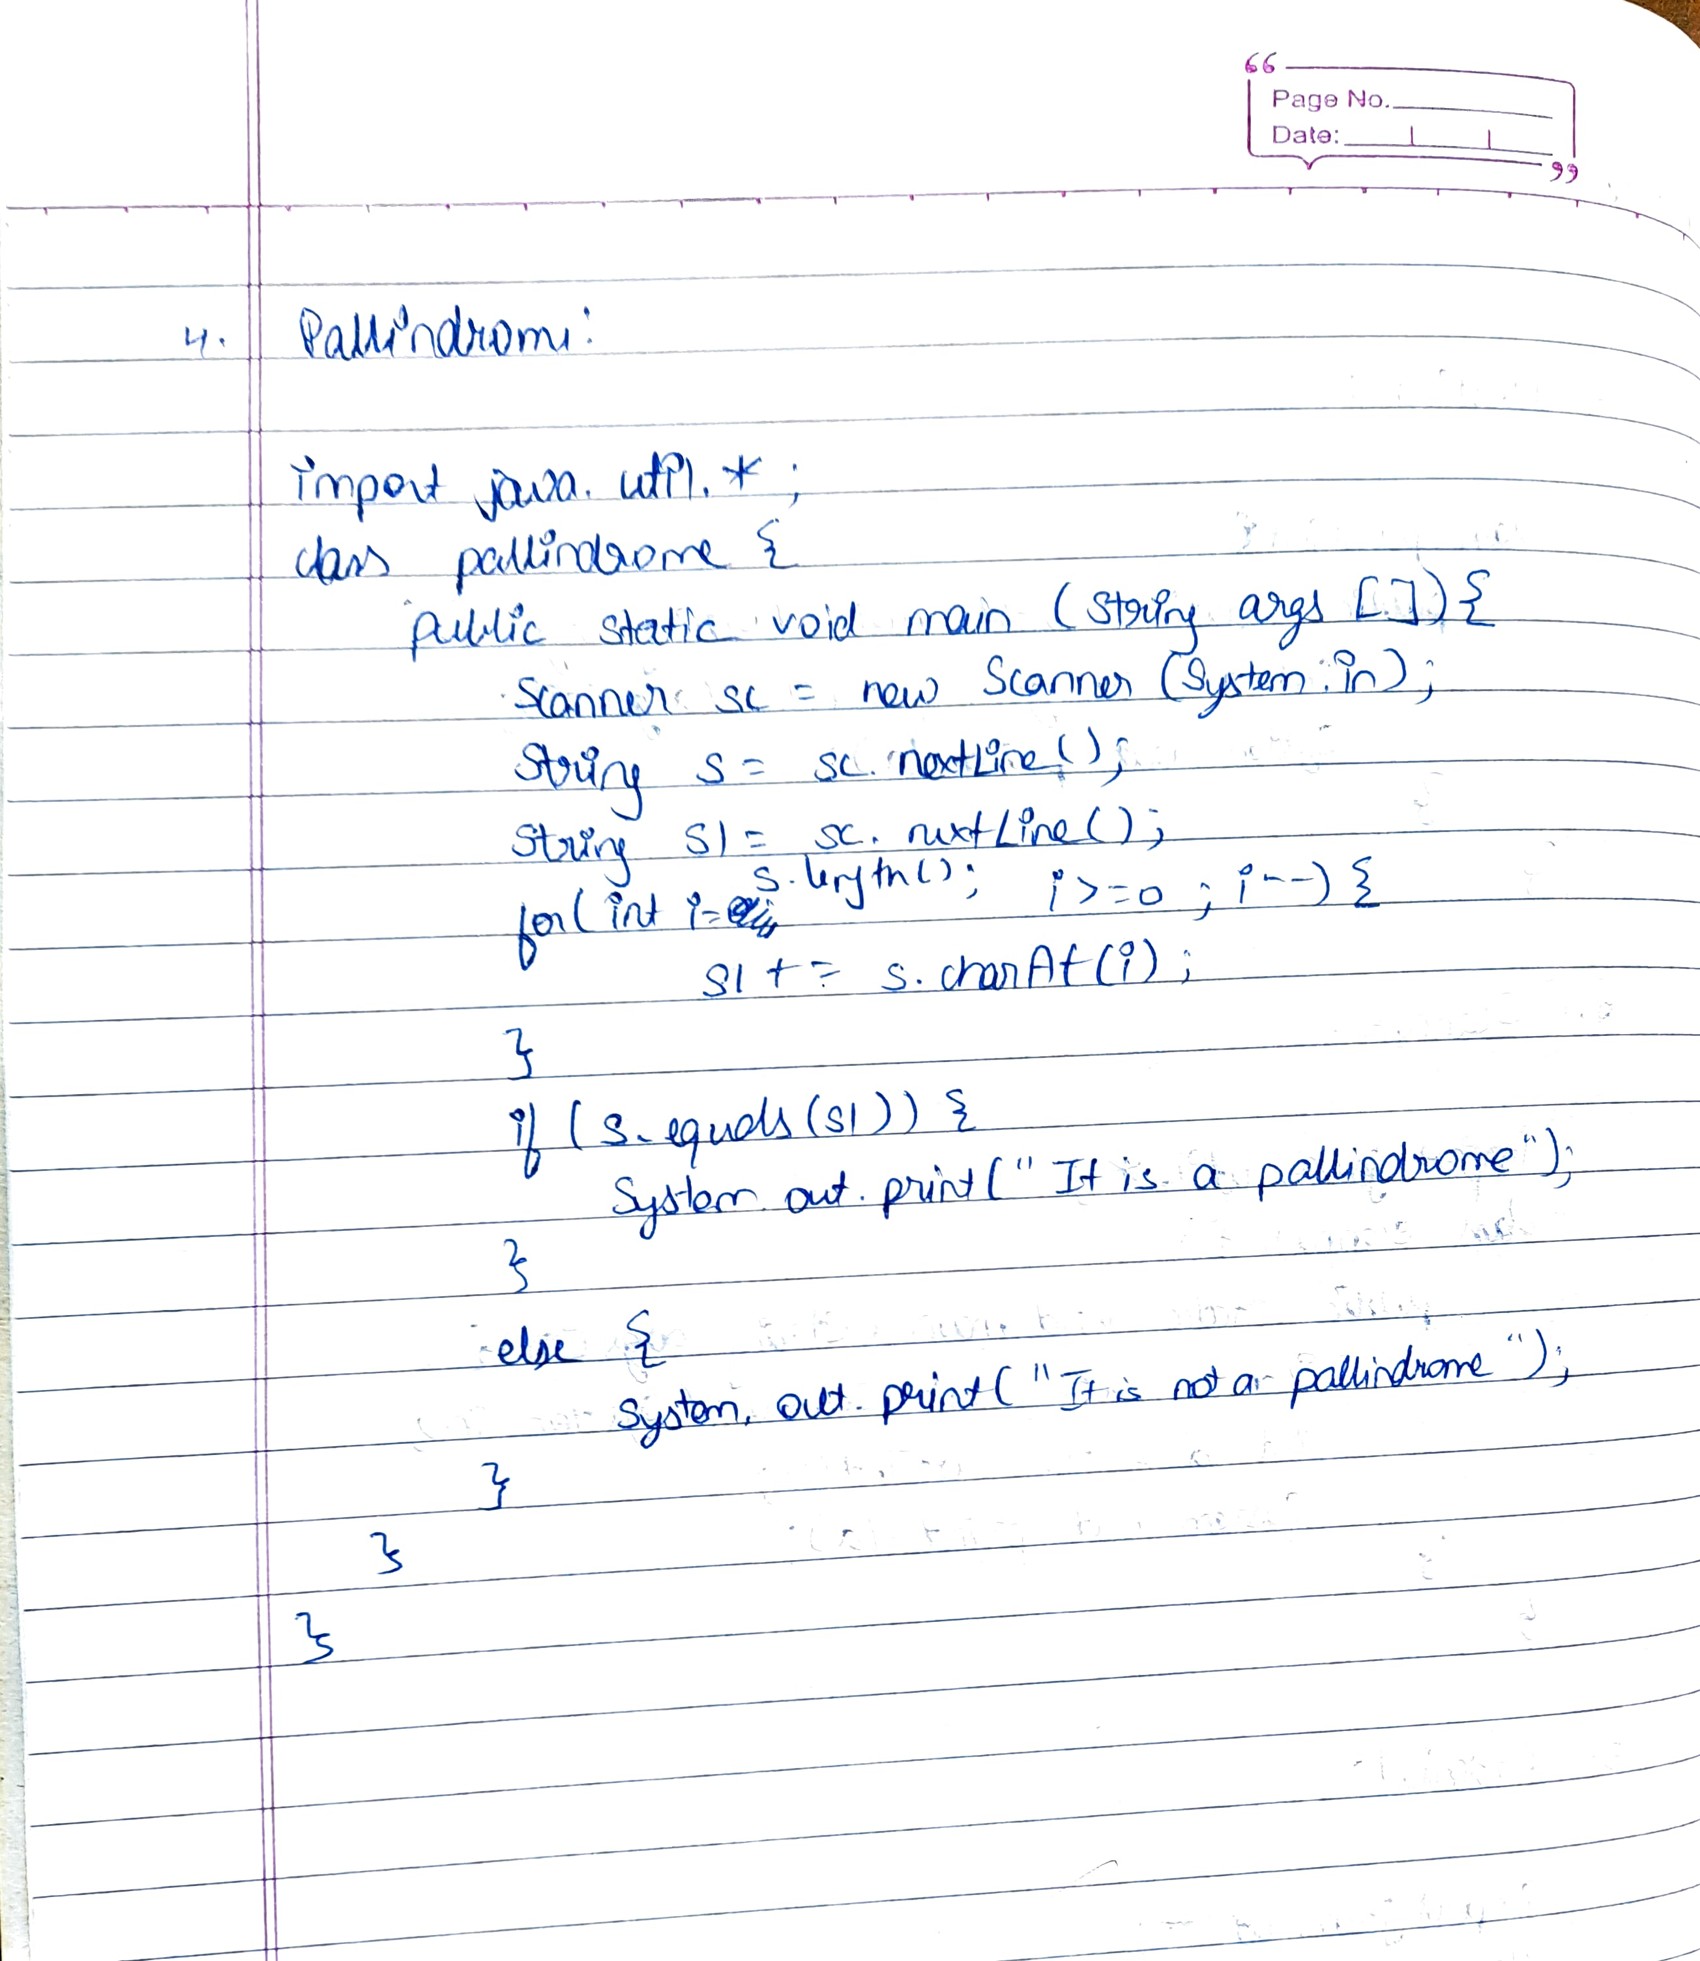 Page No.
Date:
4. Pallindrome:
import java.util.*;
class pallindrome {
public static void main (String args []) {
Scanner sc = new Scanner (System.in);
String s = sc.nextLine();
String s1 = sc.nextLine();
for( int i= s.length(); i>=0 ; i--) {
s1 += s.charAt(i);
}
if (s.equals(s1)) {
System.out.print(" It is a pallindrome");
}
else {
System.out.print("It is not a pallindrome");
}
}
}